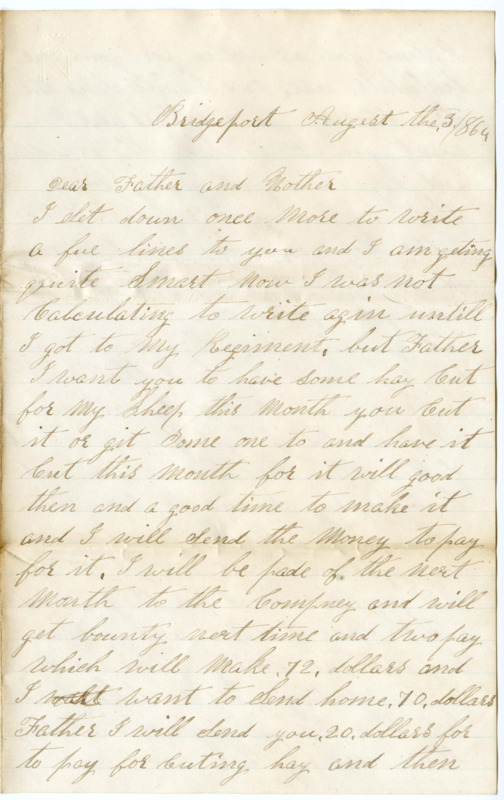 Bridgeport August the, 3, 1864
Dear Father and Mother
I set down once More to write
a fue lines to you and I am geting
quite Smart Now I was not
Calculating to write agin untill
I got to My Regiment, but Father
I want you to have some hay Cut
for My Sheep this Month you Cut
it or git Some one to and have it
Cut this Month for it will good
then and a good time to make it
and I will Send the Money to pay
for it. I will be pade of the next
Month to the Compney and will
get bounty next time and two pay
which will Make .72. dollars and
I want to Send home .70. dollars
Father I will Send you .20. dollars for
to pay for Cuting hay and then